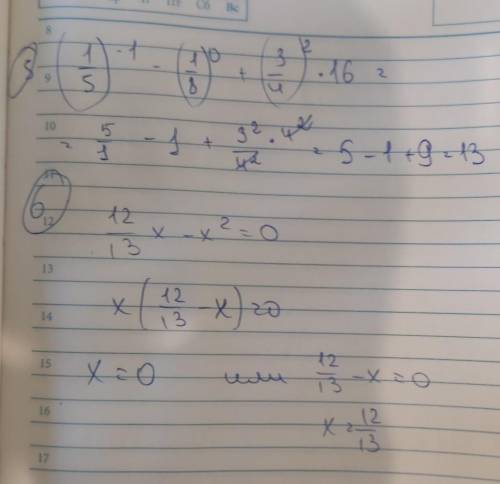 Пт Сб Вс
8
5) (1/5)^-1 - (1/8)^0 + (3/4)^2 · 16 =
9
10
= 5/1 - 1 + 3^2/4^2 · 4^2 = 5 - 1 + 9 = 13
11
6
12
12/13 x - x^2 = 0
13
x(12/13 - x) = 0
14
15
x = 0 или 12/13 - x = 0
16
x = 12/13
17